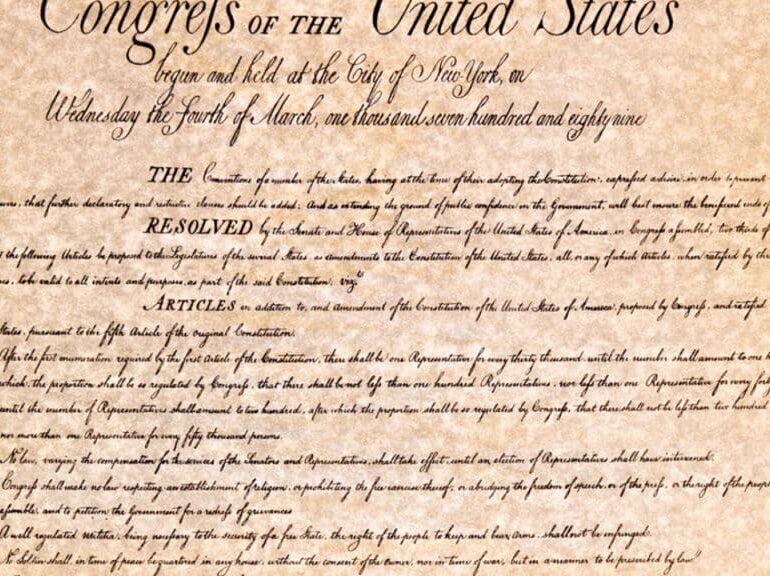 Congreſs OF THE United States
begun and held at the City of New-York, on
Wednesday the Fourth of March, one thousand seven hundred and eighty nine
THE Conventions of a number of the States, having at the time of their adopting the Constitution, expressed a desire, in order to prevent
that further declaratory and restrictive clauses should be added: And as extending the ground of public confidence in the Government, will best insure the beneficent ends of
RESOLVED by the Senate and House of Representatives of the United States of America, in Congreſs aſsembled, two thirds of
the following Articles be proposed to the Legislatures of the several States, as amendments to the Constitution of the United States, all, or any of which Articles, when ratified by
to be valid to all intents and purposes, as part of the said Constitution; vizt.
ARTICLES in addition to, and Amendment of the Constitution of the United States of America, proposed by Congreſs, and ratified
States, pursuant to the fifth Article of the original Constitution.
After the first enumeration required by the first Article of the Constitution, there shall be one Representative for every thirty thousand, until the number shall amount to one
which, the proportion shall be so regulated by Congreſs, that there shall be not leſs than one hundred Representatives, nor leſs than one Representative for every forty
until the number of Representatives shall amount to two hundred, after which the proportion shall be so regulated by Congreſs, that there shall not be leſs than two hundred
nor more than one Representative for every fifty thousand persons.
No law, varying the compensation for the services of the Senators and Representatives, shall take effect, until an election of Representatives shall have intervened.
Congreſs shall make no law respecting an establishment of religion, or prohibiting the free exercise thereof; or abridging the freedom of speech, or of the preſs, or the right of the
aſsemble, and to petition the Government for a redreſs of grievances
A well regulated militia, being neceſsary to the security of a free State, the right of the people to keep and bear arms, shall not be infringed.
No Soldier shall, in time of peace be quartered in any house, without the consent of the Owner, nor in time of war, but in a manner to be prescribed by law.